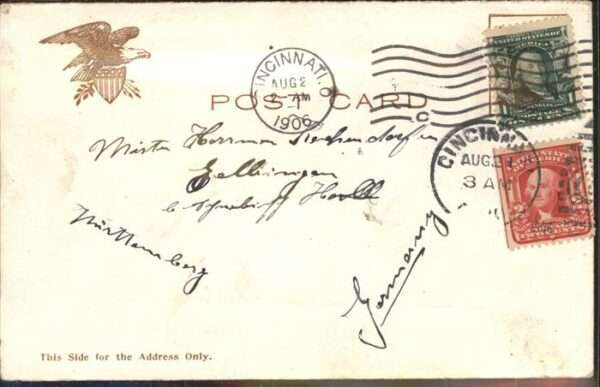 CINCINNATI, O.
AUG 2
AM
1906
C
POST CARD
UNITED STATES OF AMERICA
CINCINN
AUG 2
3 AM
Mister Herrman
b Schwäbisch Hall
Württemberg
Germany
This Side for the Address Only.